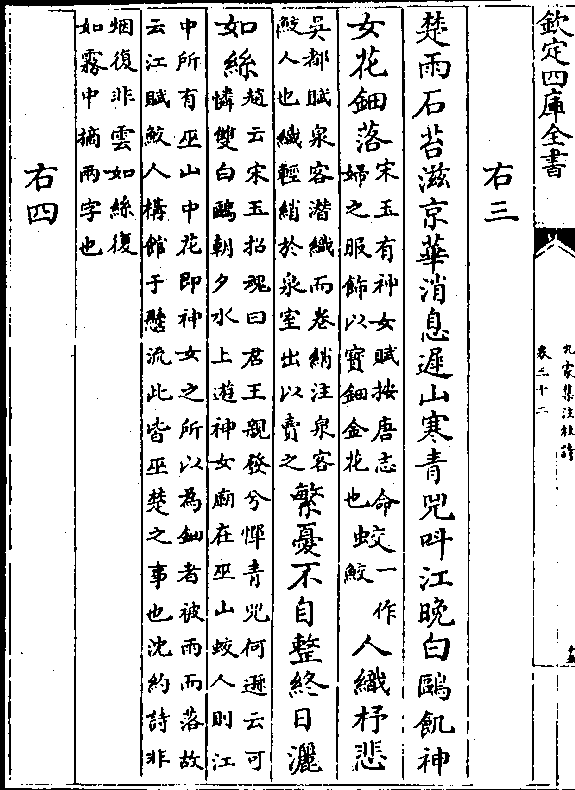 欽定四庫全書
九家集注杜詩
卷三十二
右三
楚雨石苔滋京華消息遲山寒青兕叫江晚白鷗飢神
女花鈿落宋玉有神女賦按唐志命
婦之服飾以寶鈿金花也蛟一作
鮫人織杼悲
吳都賦泉客潛織而卷綃注泉客
鮫人也纖輕綃於泉室出以賣之繁憂不自整終日灑
如絲趙云宋玉招魂曰君王親發兮憚青兕何遜云可
憐雙白鷗朝夕水上遊神女廟在巫山蛟人則江
中所有巫山中花即神女之所以為鈿者被雨而落故
云江賦鮫人構館于懸流此皆巫楚之事也沈約詩非
烟復非雲如絲復
如霧中摘兩字也
右四